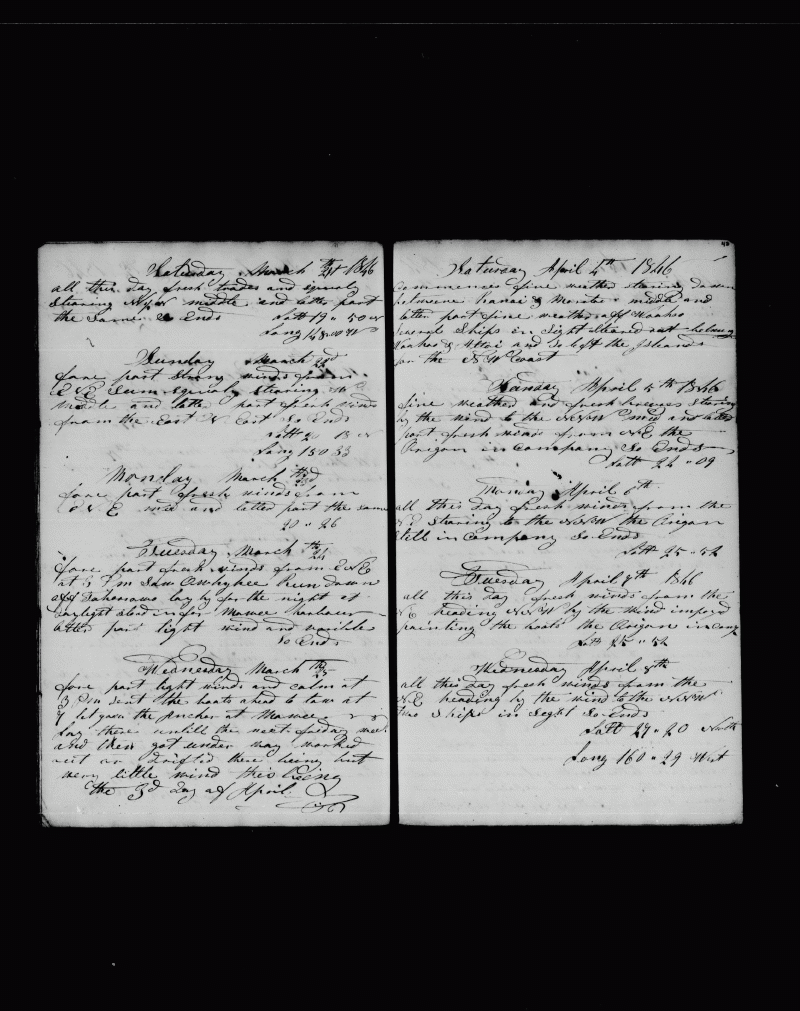 Saturday March 21th 1846
all this day fresh trades and squaly
Stearing NbyW middle and latter part
the Same So Ends
Latt 19 " 50 N
Long 148 00 W
Sunday March 22d
fore part Strong winds from
ENE Sum squaly stearing W
Middle and latte part fresh winds
from the East N East So Ends
Latt 20 13 N
Long 150 33
Monday March 23d
fore part fresh winds from
E N E mid and letter part the same
20 " 26
Tuesday March 24th
fore part fresh winds from ENE
at 3 Pm Saw Owhyhee Run down
off lay by for the night at
daylight stood in for Mawee harbour
latter part light wind and varible
So Ends
Wednesday March 25th
fore part light winds and calm at
3 Pm sent the boats ahead to tow at
7 let goun the Ancher at Mawee
lay there untill the next friday week
and then got under way worked
out or drifted there being but
very little wind this being
the 3d day of April
40
Saturday April 4th 1846
Commences fine weather staring down
between Ranai & Morotoi middle and
latter part fine weather off Woahoo
Several Ships in Sight Steared out between
Woahoo & Attoi and So left the Islands
for the N W Coast
Sunday April 5th 1846
fine weather and fresh breeses Staring
by the wind to the NNW mid and latter
part fresh winds from NE the
in company So Ends
Latt 24 " 09
Monday April 6th
all this day fresh winds from the
NE Staring to the NNW the
still in Company So Ends
Latt 25 " 52
Tuesday April 7th 1846
all this day fresh winds from the
NE heading NNW by the wind imployd
painting the boats the in comp
Latt 25 " 52
Wednesday April 8th
all this day fresh winds from the
N.E heading by the wind to the NNW
two Ships in Seght So Ends
Latt 27 " 20 North
Long 160 " 29 West